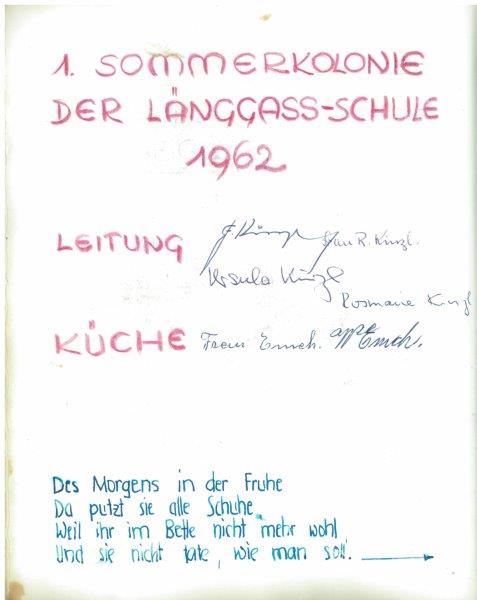 1. SOMMERKOLONIE
DER LÄNGGASS-SCHULE
1962
LEITUNG
Frau R. Künzl.
Ursula Künzl
Rosmarie Künzl
KÜCHE Frau Emch. Emch.
Des Morgens in der Fruhe
Da putzt sie alle Schuhe
Weil ihr im Bette nicht mehr wohl
Und sie nicht täte, wie man soll.